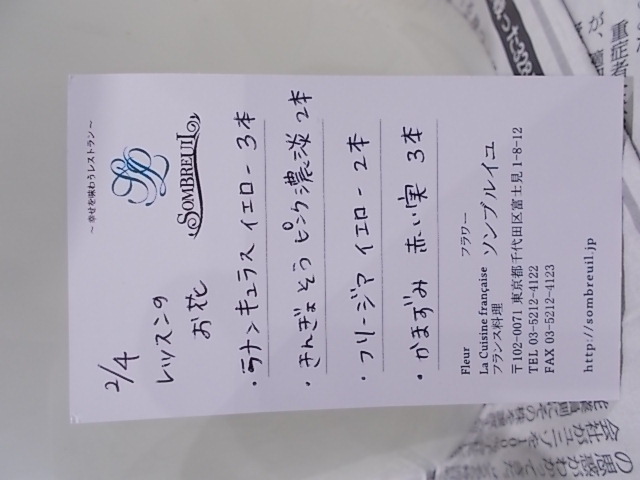 ～ 幸せを味わうレストラン ～
SL
SOMBREUIL
2/4
レッスンの
お花
・ラナンキュラス イエロー 3本
・きんぎょそう ピンク濃淡 2本
・フリージア イエロー 2本
・がまずみ 赤い実 3本
Fleur フラワー
La Cuisine française ソンブルイユ
フランス料理
〒102-0071 東京都千代田区富士見 1-8-12
TEL 03-5212-4122
FAX 03-5212-4123
http://sombreuil.jp
重症者